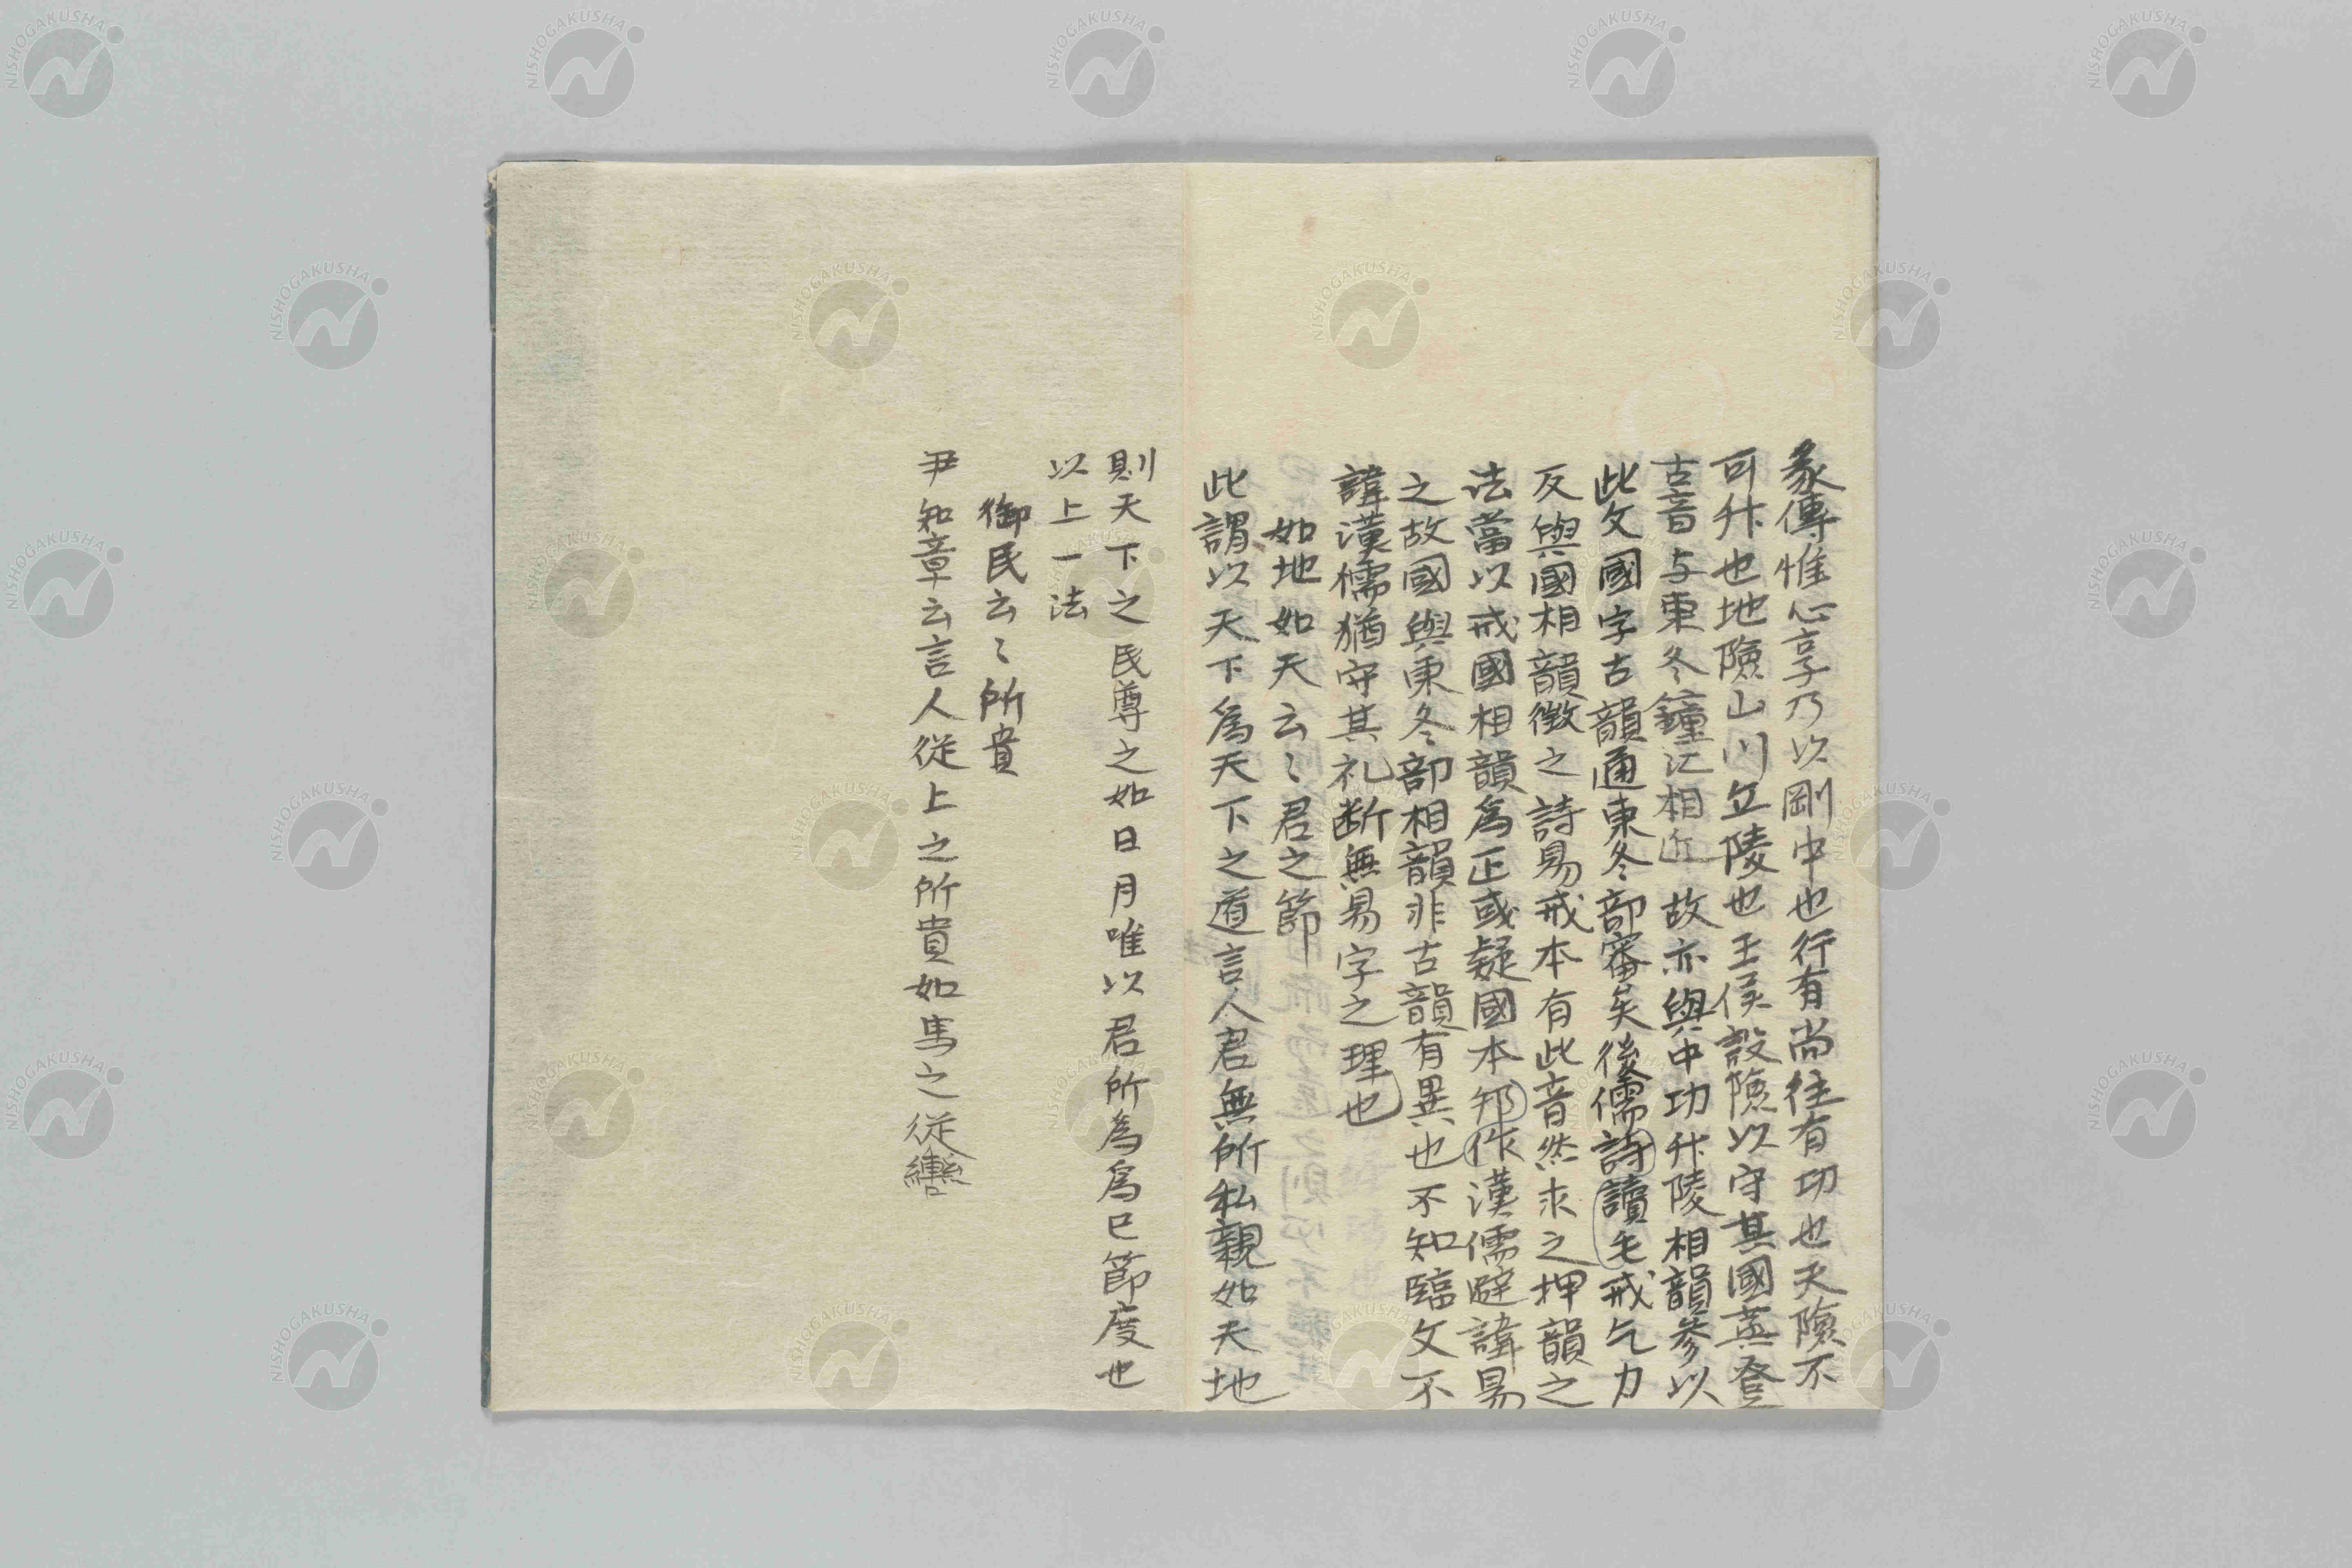 彖傳惟心享乃以剛中也行有尚往有功也天險不
可升也地險山川丘陵也王侯設險以守其國蓋登
古音与東冬鐘江相近故亦與中功升陵相韻參以
此文國字古韻通東冬部審矣後儒詩讀毛戒乞力
反與國相韻徴之詩易戒本有此音然求之押韻之
法當以戒國相韻為正或疑國本邦作漢儒避諱易
之故國與東冬部相韻非古韻有異也不知臨文不
諱漢儒猶守其礼断無易字之理也
如地如天云〻君之節
此謂以天下為天下之道言人君無所私親如天地
則天下之民尊之如日月唯以君所為為己節度也
以上一法
御民云〻所貴
尹知章云言人從上之所貴如馬之從轡
NISHOGAKUSHA